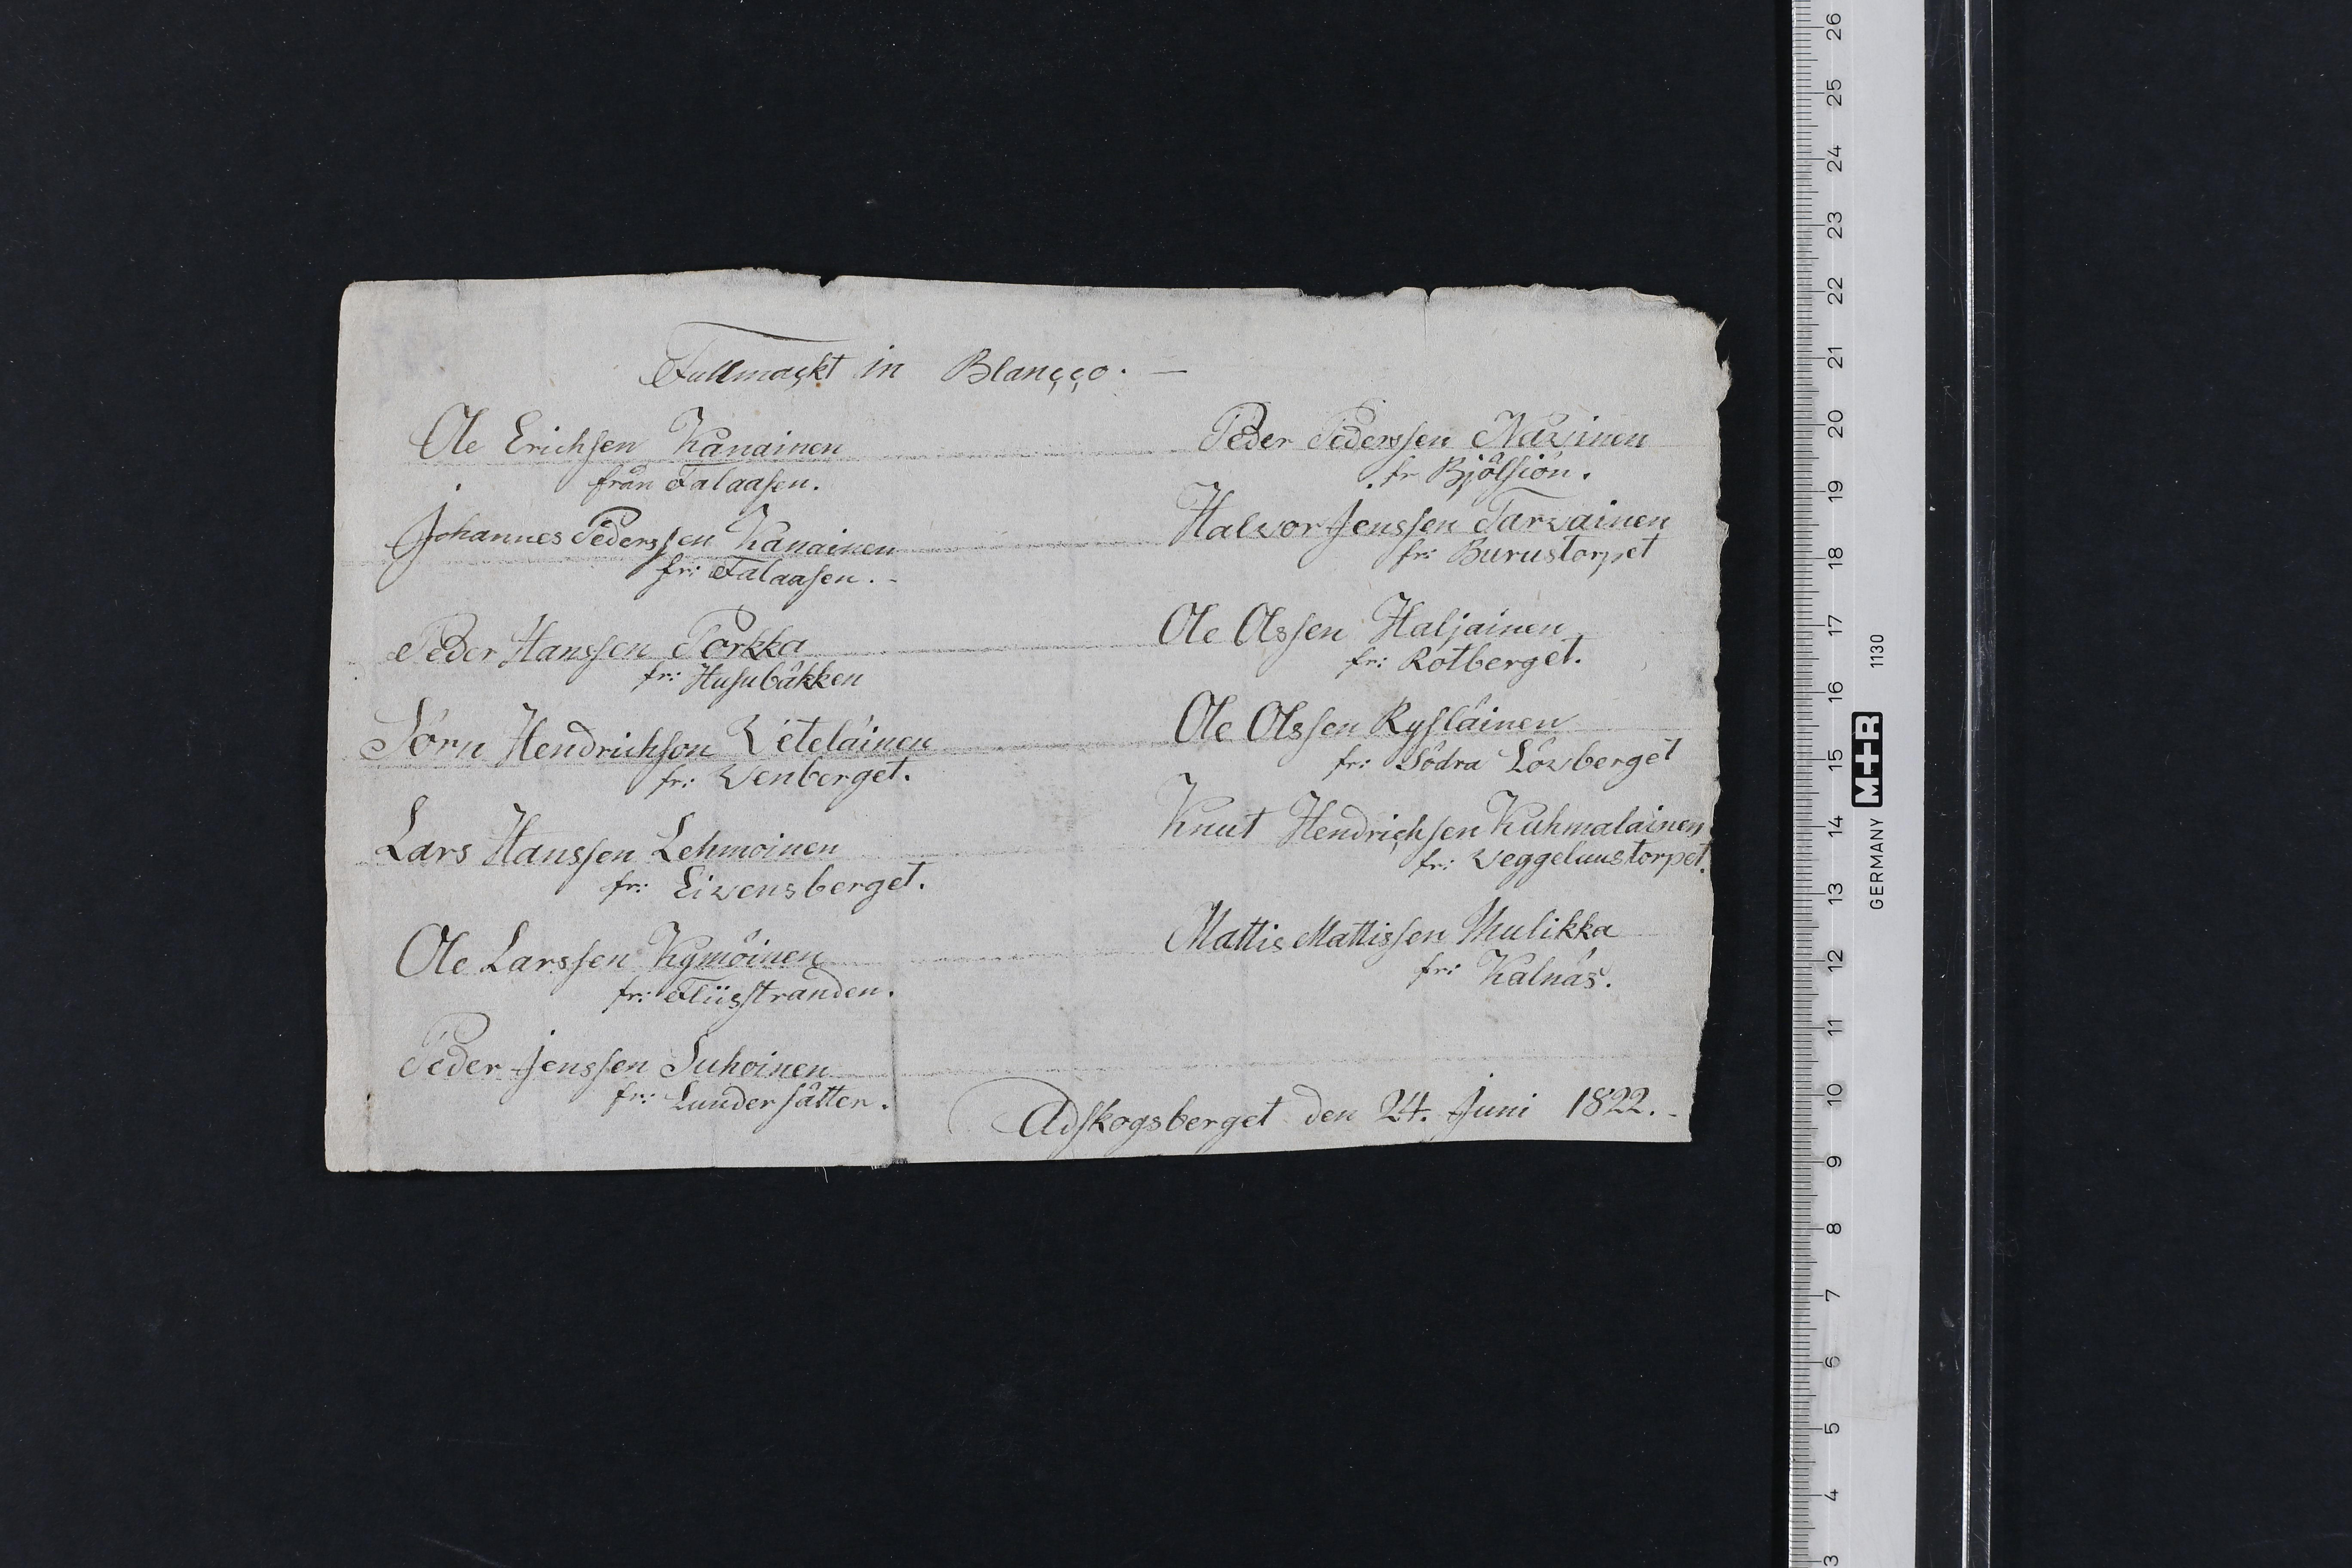 Fullmaçkt in Blançço. —
Ole Erichsen Kånainen
från Falaasen.
Johannes Pederssen Kanainen
fr: Falaasen. -
Peder Hanssen Porkka
fr: Husubäkken
Sörn Hendrichson Veteläinen
fr: Venberget.
Lars Hanssen Lehmoinen
fr: Eivensberget.
Ole Larssen Kymöinen
fr: Fliisstranden.
Peder Jenssen Suhoinen
fr: Lundersätter.
Peder Pederssen Navinen
fr Bjölsiön.
Halvor Jenssen Tarvainen
fr: Burustorpet
Ole Olssen Haljainen
fr: Rotberget.
Ole Olssen Rysläinen
fr: Södra Lövberget
Knut Hendriçhsen Kuhmalainen
fr: Veggelaustorpet.
Mattis Mattissen Mulikka
fr: Kalnäs.
Adskogsberget den 24. Juni 1822. -
26
25
24
23
22
21
20
19
18
17
16
15
14
13
12
11
10
9
8
7
6
5
4
3
GERMANY M+R 1130